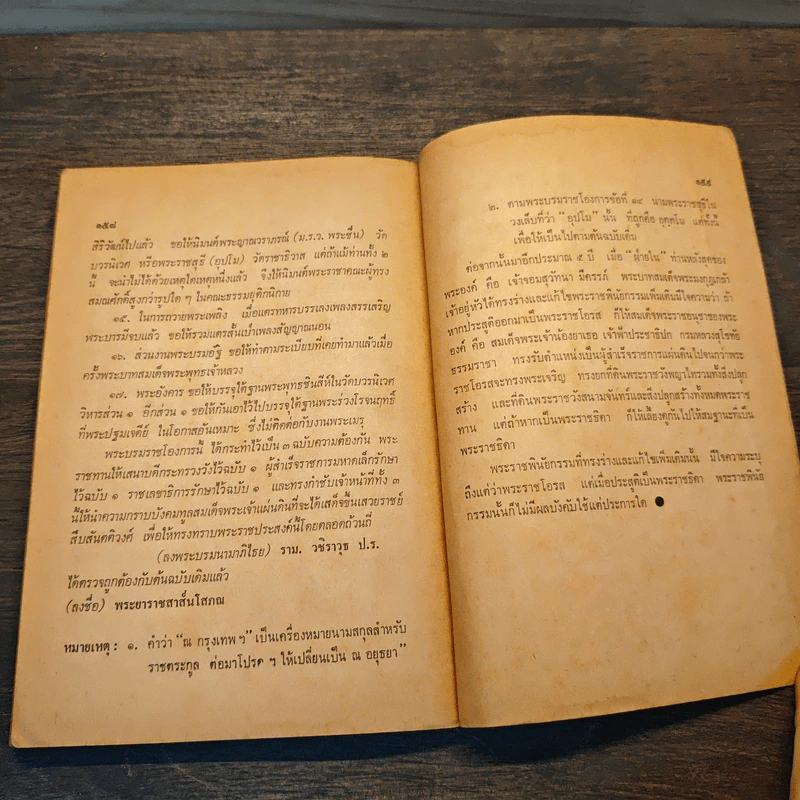 ๑๕๘
สิริวัฒน์ไปแล้ว ขอให้นิมนต์พระญาณวราภรณ์ (ม.ร.ว. พระชื่น) วัด
บวรนิเวศ หรือพระราชสุธี (อุปโม) วัดราชาธิวาส แต่ถ้าแม้ท่านทั้ง ๒
นี้ จะนำไม่ได้ด้วยเหตุใดเหตุหนึ่งแล้ว จึงให้นิมนต์พระราชาคณะผู้ทรง
สมณศักดิ์สูงกว่ารูปใด ๆ ในคณะธรรมยุติกนิกาย
๑๕. ในการถวายพระเพลิง เมื่อแตรทหารบรรเลงเพลงสรรเสริญ
พระบารมีจบแล้ว ขอให้รวมแตรสั้นเป่าเพลงสัญญาณนอน
๑๖. ส่วนงานพระบรมอัฐิ ขอให้ทำตามระเบียบที่เคยทำมาแล้วเมื่อ
ครั้งพระบาทสมเด็จพระพุทธเจ้าหลวง
๑๗. พระอังคาร ขอให้บรรจุใต้ฐานพระพุทธชินสีห์ในวัดบวรนิเวศ
วิหารส่วน ๑ อีกส่วน ๑ ขอให้กันเอาไว้ไปบรรจุใต้ฐานพระร่วงโรจนฤทธิ์
ที่พระปฐมเจดีย์ ในโอกาสอันเหมาะ ซึ่งไม่ติดต่อกับงานพระเมรุ
พระบรมราชโองการนี้ ได้กระทำไว้เป็น ๓ ฉบับความต้องกัน พระ
ราชทานให้เสนาบดีกระทรวงวังไว้ฉบับ ๑ ผู้สำเร็จราชการมหาดเล็กรักษา
ไว้ฉบับ ๑ ราชเลขาธิการรักษาไว้ฉบับ ๑ และทรงกำชับเจ้าหน้าที่ทั้ง ๓
นี้ให้นำความกราบบังคมทูลสมเด็จพระเจ้าแผ่นดินที่จะได้เสด็จขึ้นเสวยราชย์
สืบสันตติวงศ์ เพื่อให้ทรงทราบพระราชประสงค์นี้โดยตลอดถ้วนถี่
(ลงพระบรมนามาภิไธย) ราม. วชิราวุธ ป.ร.
ได้ตรวจถูกต้องกับต้นฉบับเดิมแล้ว
(ลงชื่อ) พระยาราชสาส์นโสภณ
หมายเหตุ : ๑. คำว่า “ณ กรุงเทพ ฯ” เป็นเครื่องหมายนามสกุลสำหรับ
ราชตระกูล ต่อมาโปรด ฯ ให้เปลี่ยนเป็น ณ อยุธยา”
๑๕๙
๒. ตามพระบรมราชโองการข้อที่ ๑๔ นามพระราชสุธีใน
วงเล็บที่ว่า “อุปโม” นั้น ที่ถูกคือ อุตฺตโม แต่ทั้งนี้
เพื่อให้เป็นไปตามต้นฉบับเดิม
ต่อจากนั้นมาอีกประมาณ ๕ ปี เมื่อ “ฝ่ายใน” ท่านหลังสุดของ
พระองค์ คือ เจ้าจอมสุวัทนา มีครรภ์ พระบาทสมเด็จพระมงกุฎเกล้า
เจ้าอยู่หัวได้ทรงร่างและแก้ไขพระราชพินัยกรรมเพิ่มเติมมีใจความว่า ถ้า
หากประสูติออกมาเป็นพระราชโอรส ก็ให้สมเด็จพระราชอนุชาของพระ
องค์ คือ สมเด็จพระเจ้าน้องยาเธอ เจ้าฟ้าประชาธิปก กรมหลวงสุโขทัย
ธรรมราชา ทรงรับตำแหน่งเป็นผู้สำเร็จราชการแผ่นดินไปจนกว่าพระ
ราชโอรสจะทรงพระเจริญ ทรงยกที่ดินพระราชวังพญาไทรวมทั้งสิ่งปลูก
สร้าง และที่ดินพระราชวังสนามจันทร์และสิ่งปลูกสร้างทั้งหมดพระราช
ทาน แต่ถ้าหากเป็นพระราชธิดา ก็ให้เลี้ยงดูกันไปให้สมฐานะที่เป็น
พระราชธิดา
พระราชพินัยกรรมที่ทรงร่างและแก้ไขเพิ่มเติมนั้น มีใจความระบุ
ถึงแต่ว่าพระราชโอรส แต่เมื่อประสูติเป็นพระราชธิดา พระราชพินัย
กรรมนั้นก็ไม่มีผลบังคับใช้แต่ประการใด ●